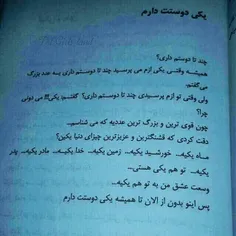 یکی دوستت دارم
چند تا دوستم داری؟
همیشه وقتی یکی ازم می پرسید چند تا دوستم داری یه عدد بزرگ
می گفتم
ولی وقتی تو ازم پرسیدی چند تا دوستم داری؟ گفتم: یکی!!! می دونی
چرا؟
چون قوی ترین و بزرگ ترین عددیه که می شناسم..
دقت کردی که قشنگترین و عزیزترین چیزای دنیا یکین؟
ماه یکیه.. خورشید یکیه.. زمین یکیه.. خدا یکیه.. مادر یکیه.. پدر
یکیه.. تو هم یکی هستی...
وسعت عشق من به تو هم یکیه..
پس اینو بدون از الان تا همیشه یکی دوستت دارم